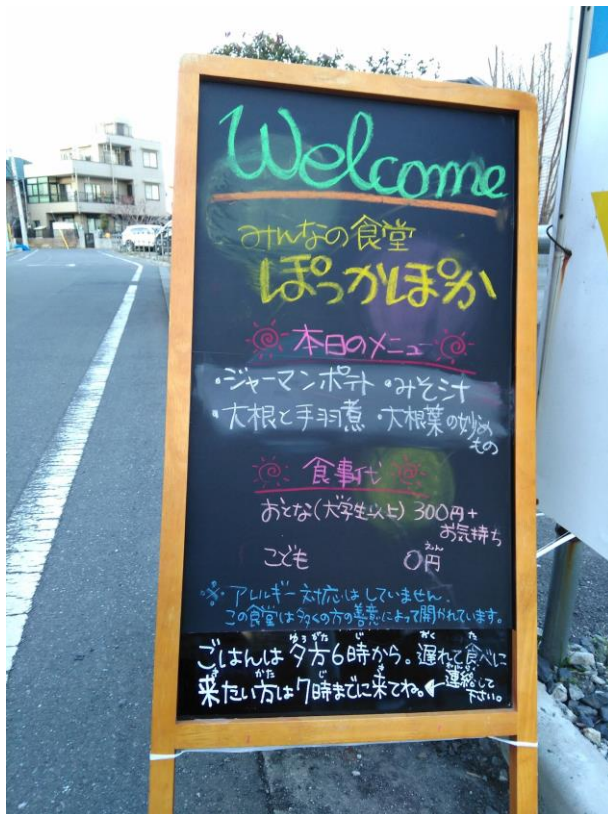 Welcome
みんなの食堂
ぽっかぽか
本日のメニュー
・ジャーマンポテト ・みそ汁
・大根と手羽煮 ・大根葉の炒めもの
食事代
おとな(大学生以上) 300円+
お気持ち
こども 0円
えん
※アレルギー対応はしていません。
この食堂は多くの方の善意によって開かれています。
ゆうがた じ おく た
ごはんは夕方6時から。遅れて食べに
き かた じ き れんらく くだ
来たい方は7時までに来てね。←連絡して下さい。